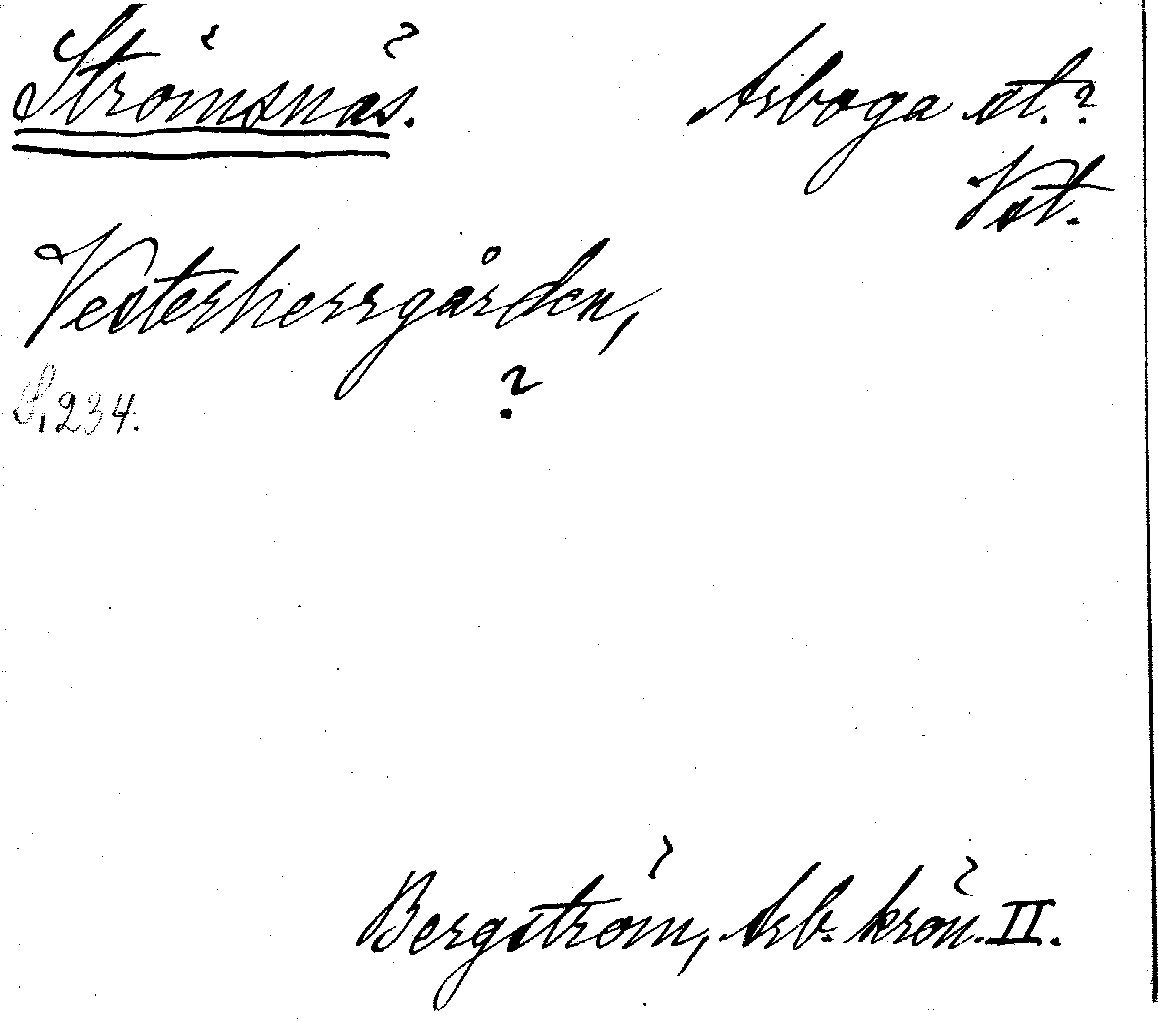 Strömsnäs.
Arboga st.?
Vst.
Vesterherrgården,
?
S, 234.
Bergström, Arb. krön. II.